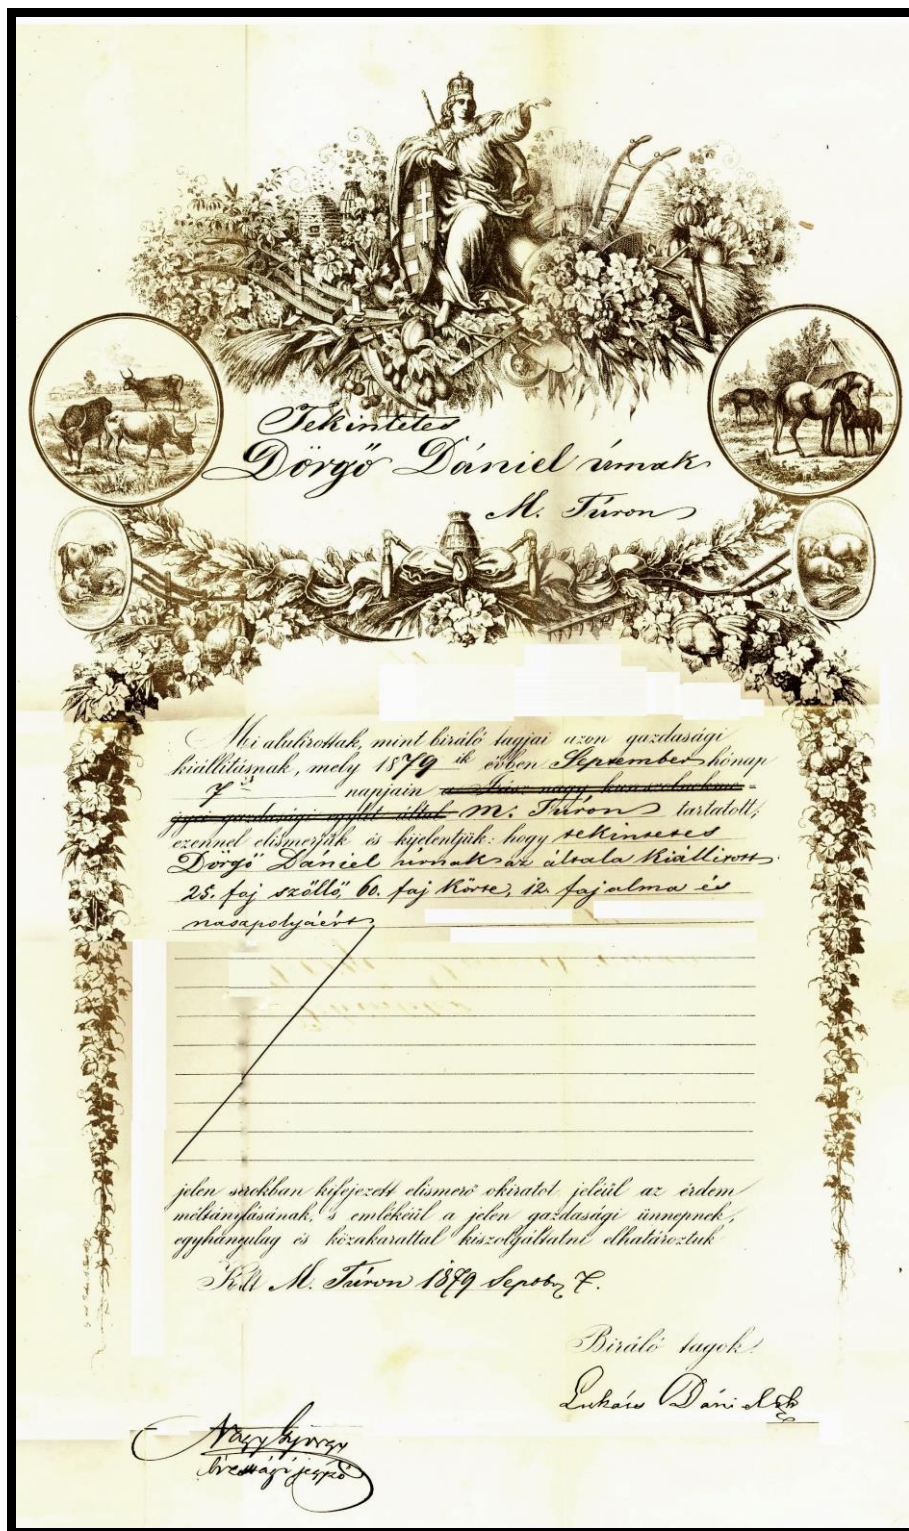 Tekintetes
Dörgő Dániel úrnak
M. Túron
Mi alulirottak, mint biráló tagjai azon gazdasági
kiállításnak, mely 1879 ik évben September hónap
7 ik napjain a Jász nagy kun szolnokme-
gyei gazdasági egylet által M. Túron tartatott,
ezennel elismerjük és kijelentjük: hogy tekintetes
Dörgő Dániel úrnak az általa kiállitott
25. faj szöllő, 60. faj körte, 12. faj alma és
nasapolyáért
jelen sorokban kifejezett elismerő okiratot jeléül az érdem
méltánylásának, s emlékéül a jelen gazdasági ünnepnek,
egyhangulag és közakarattal kiszolgáltatni elhatároztuk
Kelt M. Túron 1879 Septbr 7.
Biráló tagok:
Lukács Dániel
Nagy György
jegyző